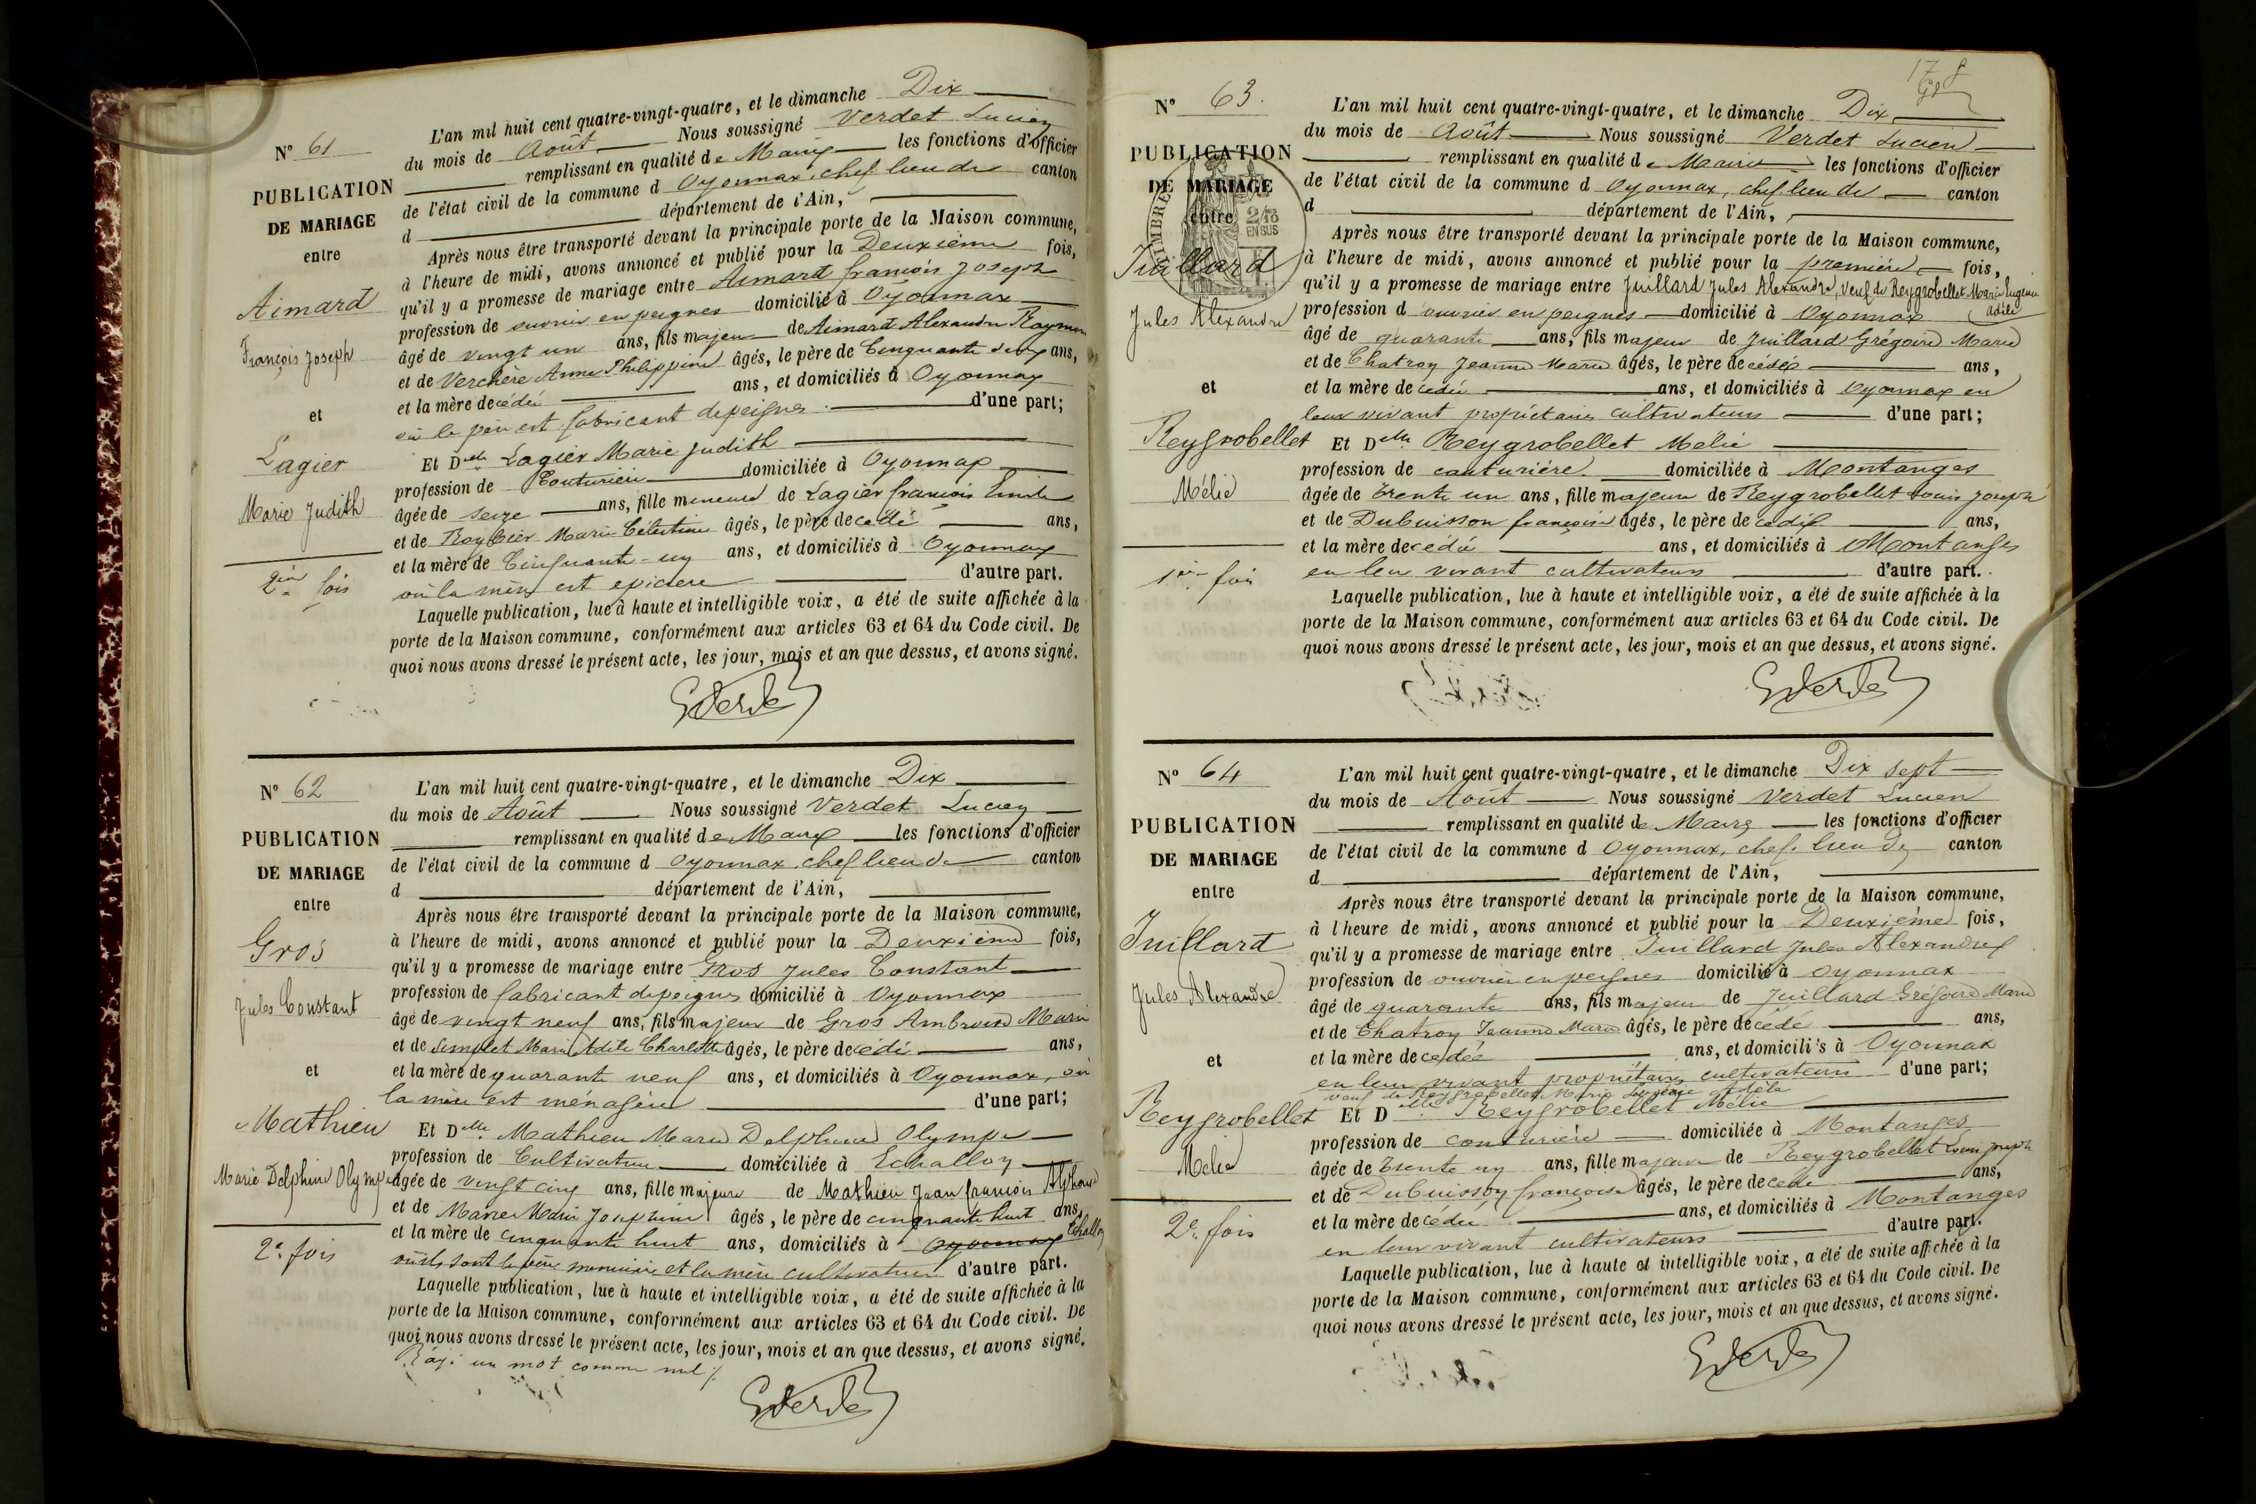 N° 61
PUBLICATION
DE MARIAGE
entre
Aimard
François Joseph
et
Lagier
Marie Judith
2ème fois
L'an mil huit cent quatre-vingt-quatre, et le dimanche Dix
du mois de Août Nous soussigné Verdet Lucien
remplissant en qualité de Maire les fonctions d'officier
de l'état civil de la commune d Oyonnax, chef lieu de canton
d département de l'Ain,
Après nous être transporté devant la principale porte de la Maison commune,
à l'heure de midi, avons annoncé et publié pour la Deuxième fois,
qu'il y a promesse de mariage entre Aimard françois Joseph
profession de ouvrier en peignes domicilié à Oyonnax
âgé de vingt un ans, fils majeur de Aimard Alexandre Raymon
et de Verchère Anne Philippine âgés, le père de Cinquante deux ans,
et la mère decédée ans, et domiciliés à Oyonnax
où le père est fabricant de peignes d'une part;
Et Delle Lagier Marie Judith
profession de Couturière domiciliée à Oyonnax
âgée de seize ans, fille mineure de Lagier françois Emile
et de Marie Célestine âgés, le père decédé ans,
et la mère de Cinquante-un ans, et domiciliés à Oyonnax
où la mère est epiciere d'autre part.
Laquelle publication, lue à haute et intelligible voix, a été de suite affichée à la
porte de la Maison commune, conformément aux articles 63 et 64 du Code civil. De
quoi nous avons dressé le présent acte, les jour, mois et an que dessus, et avons signé.
N° 62
PUBLICATION
DE MARIAGE
entre
Gros
Jules Constant
et
Mathieu
Marie Delphine Olympe
2e fois
L'an mil huit cent quatre-vingt-quatre, et le dimanche Dix
du mois de Août Nous soussigné Verdet Lucien
remplissant en qualité de Maire les fonctions d'officier
de l'état civil de la commune d Oyonnax, chef lieu de canton
d département de l'Ain,
Après nous être transporté devant la principale porte de la Maison commune,
à l'heure de midi, avons annoncé et publié pour la Deuxième fois,
qu'il y a promesse de mariage entre Gros Jules Constant
profession de fabricant de peignes domicilié à Oyonnax
âgé de vingt neuf ans, fils majeur de Gros Ambroise Marie
et de Simplet Marie Adèle Charlotte âgés, le père decédé ans,
et la mère de quarante neuf ans, et domiciliés à Oyonnax, où
la mère est ménagère d'une part;
Et Delle Mathieu Marie Delphine Olympe
profession de Cultivatrice domiciliée à Echallon
âgée de vingt cinq ans, fille majeure de Mathieu Jean françois Alphonse
et de Marie Josephine âgés, le père de cinquante huit ans,
et la mère de cinquante huit ans, domiciliés à Oyonnax Echallon
où ils sont le père menuisier et la mère cultivatrice d'autre part.
Laquelle publication, lue à haute et intelligible voix, a été de suite affichée à la
porte de la Maison commune, conformément aux articles 63 et 64 du Code civil. De
quoi nous avons dressé le présent acte, les jour, mois et an que dessus, et avons signé.
un mot comme nul
178
N° 63.
PUBLICATION
DE MARIAGE
entre
TIMBRE
2/10
EN SUS
Juillard
Jules Alexandre
et
Reygrobellet
Mélie
1ère fois
L'an mil huit cent quatre-vingt-quatre, et le dimanche Dix
du mois de Août Nous soussigné Verdet Lucien
remplissant en qualité de Maire les fonctions d'officier
de l'état civil de la commune d Oyonnax, chef lieu de canton
d département de l'Ain,
Après nous être transporté devant la principale porte de la Maison commune,
à l'heure de midi, avons annoncé et publié pour la première fois,
qu'il y a promesse de mariage entre Juillard Jules Alexandre, veuf de Reygrobellet Marie Eugénie
Adèle
profession d ouvrier en peignes domicilié à Oyonnax
âgé de quarante ans, fils majeur de Juillard Grégoire Marie
et de Chatron Jeanne Marie âgés, le père decédé ans,
et la mère decédée ans, et domiciliés à Oyonnax en
leur vivant propriétaires cultivateurs d'une part;
Et Delle Reygrobellet Mélie
profession de couturière domiciliée à Montanges
âgée de trente un ans, fille majeure de Reygrobellet Louis Joseph
et de Dubuisson françoise âgés, le père decédé ans,
et la mère decédée ans, et domiciliés à Montanges
en leur vivant cultivateurs d'autre part.
Laquelle publication, lue à haute et intelligible voix, a été de suite affichée à la
porte de la Maison commune, conformément aux articles 63 et 64 du Code civil. De
quoi nous avons dressé le présent acte, les jour, mois et an que dessus, et avons signé.
N° 64
PUBLICATION
DE MARIAGE
entre
Juillard
Jules Alexandre
et
Reygrobellet
Mélie
2e fois
L'an mil huit cent quatre-vingt-quatre, et le dimanche Dix sept
du mois de Août Nous soussigné Verdet Lucien
remplissant en qualité de Maire les fonctions d'officier
de l'état civil de la commune d Oyonnax, chef-lieu de canton
d département de l'Ain,
Après nous être transporté devant la principale porte de la Maison commune,
à l'heure de midi, avons annoncé et publié pour la Deuxième fois,
qu'il y a promesse de mariage entre Juillard Jules Alexandre
profession de ouvrier en peignes domicilié à Oyonnax
âgé de quarante ans, fils majeur de Juillard Grégoire Marie
et de Chatron Jeanne Marie âgés, le père decédé ans,
et la mère decédée ans, et domiciliés à Oyonnax
en leur vivant propriétaires cultivateurs d'une part;
veuf de Reygrobellet Marie Eugénie Adèle
Et Delle Reygrobellet Mélie
profession de couturière domiciliée à Montanges
âgée de trente un ans, fille majeure de Reygrobellet Louis Joseph
et de Dubuisson françoise âgés, le père decédé ans,
et la mère decédée ans, et domiciliés à Montanges
en leur vivant cultivateurs d'autre part.
Laquelle publication, lue à haute et intelligible voix, a été de suite affichée à la
porte de la Maison commune, conformément aux articles 63 et 64 du Code civil. De
quoi nous avons dressé le présent acte, les jour, mois et an que dessus, et avons signé.